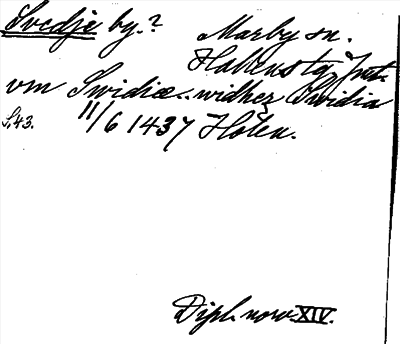 Svedje by.? Marby sn.
Hallens tg, Jmt.
vm Swidiæ.. widher Swidia
S. 43. 11/6 1437 Hólen.
Dipl. norv. XIV.